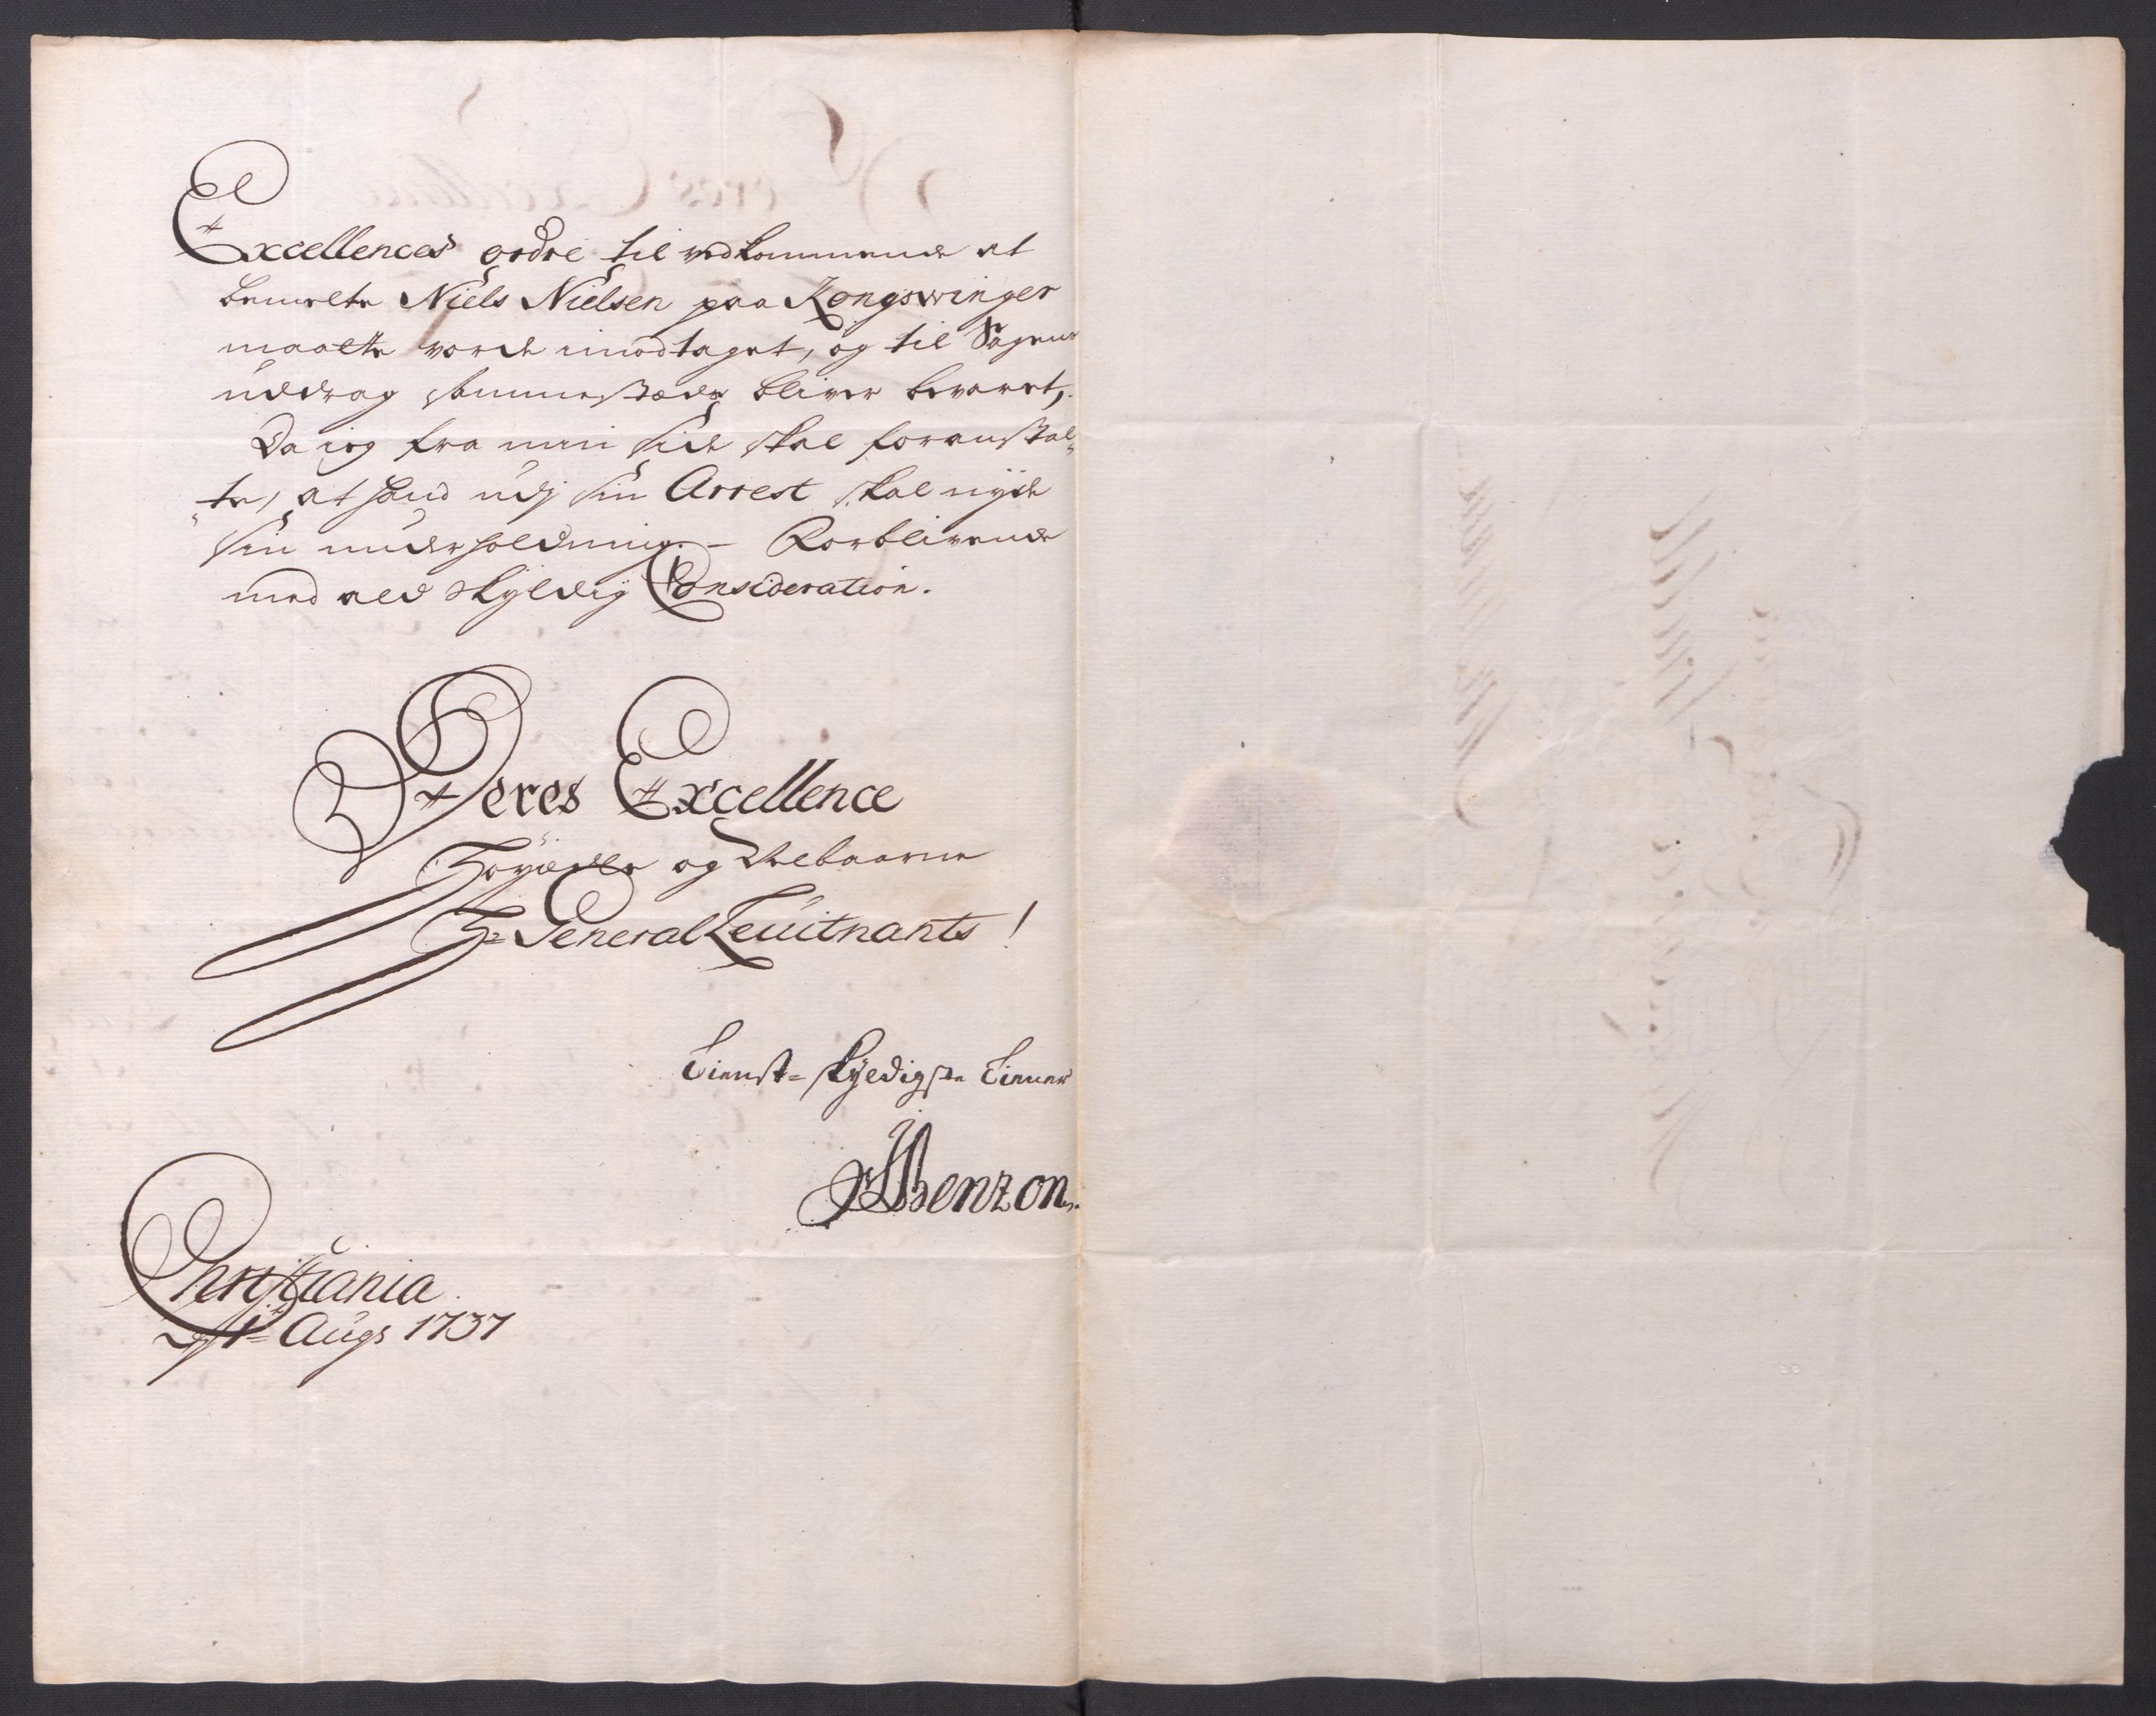 Excellences ordre til vedkommende at
bemelte Niels Nielsen paa Kongswinger
maatte vorde imodtaget, og til Sagens
uddrag sammestæds bliver bevaret,
Da ieg fra min side skal foranstal„
„te, at hand udj sin Arrest skal nyde
sin underholdning. – Forblivende
med ald skyldig Consideration.
Deres Excellence
Høyædle og Velbaarne
Hr General Leuitnants!
Tienst= skyldigste Tiener
JBenzon.
Christiania
d 1te Augs 1737